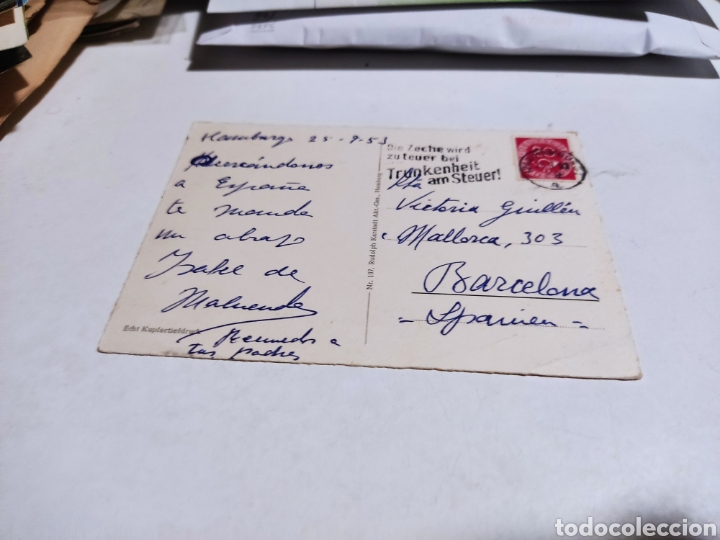 Hamburgo 25-9-53
Acercándonos
a España
te manda
un abrazo
Isabel de
Maluenda
Recuerdos a
tus padres
Echt Kupfertiefdruck
Nr. 197, Rudolph Karstadt Akt.-Ges., Hamburg
Die Zeche wird
zu teuer bei
Trunkenheit
am Steuer!
Rta
Victoria Guillén
c/ Mallorca, 303
Barcelona
- Spanien -
todocoleccion